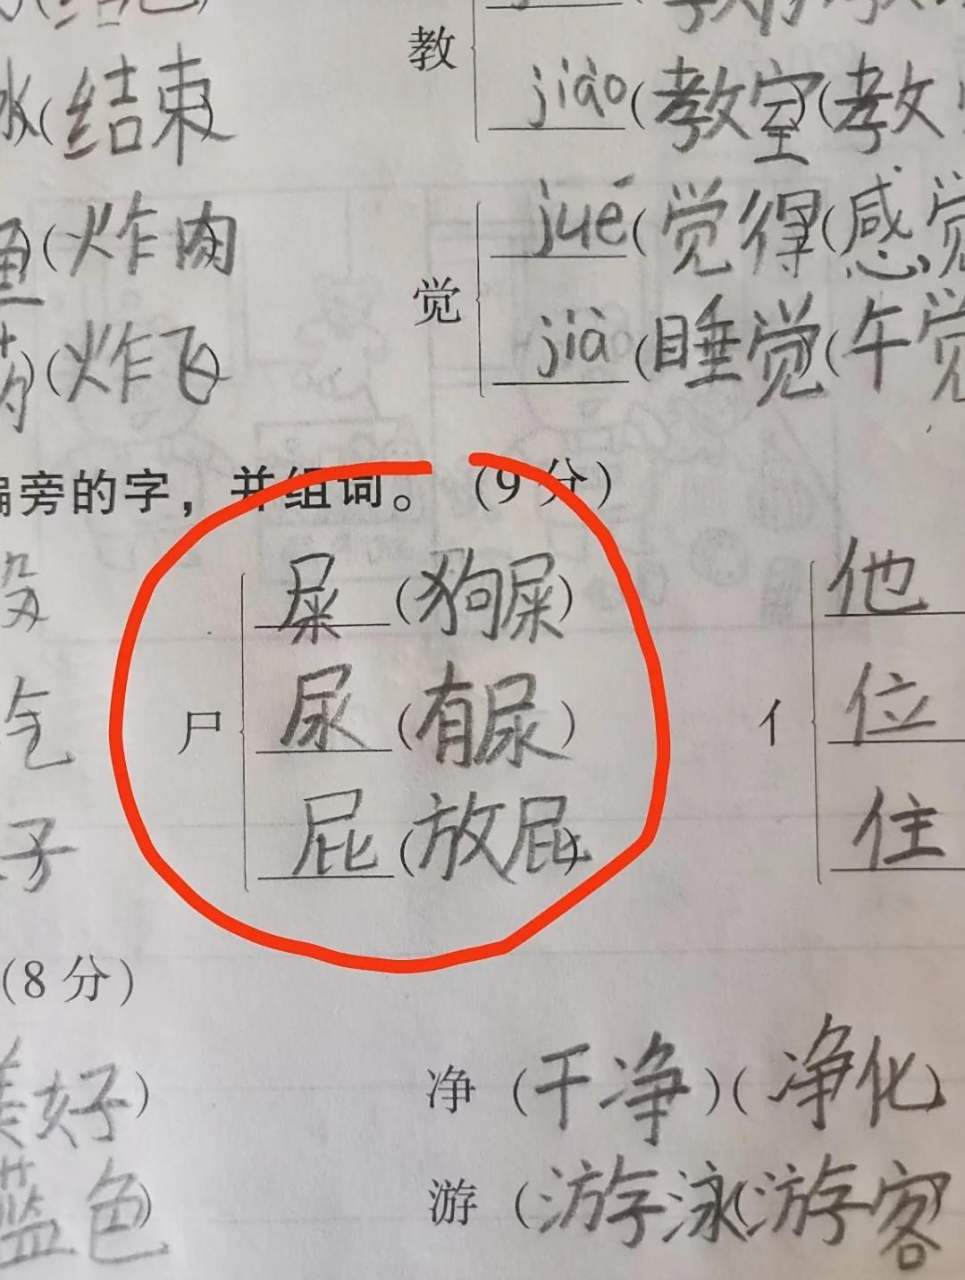 教
jiào(教室(教
冰(结束
jué(觉得(感觉
鱼(炸肉
觉
jià(睡觉(午觉
药)(炸飞)
偏旁的字，并组词。(9分)
屎(狗屎)
他
尸
尿(有尿)
亻
位
气
屁(放屁)
住
子
(8分)
美好)
净(干净)(净化)
蓝色)
游(游泳(游客)